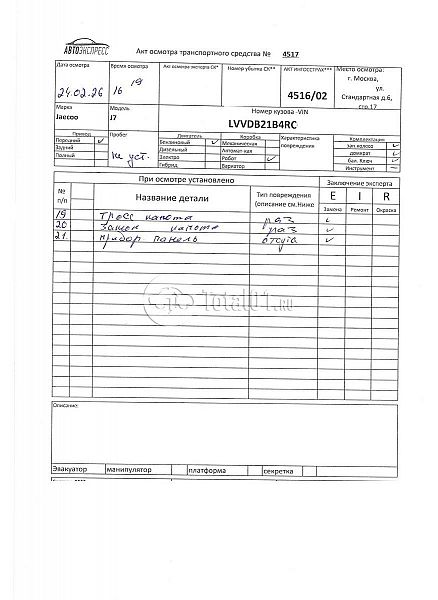 АВТОЭКСПРЕСС
Акт осмотра транспортного средства № 4517
Дата осмотра
Время осмотра
Акт осмотра эксперта СК*
Номер убытка СК**
АКТ ИНГОССТРАХ***
Место осмотра:
г. Москва,
ул.
Стандартная д.6,
стр.17
24.02.26
16 19
4516/02
Марка
Модель
Номер кузова -VIN
Jaecoo
J7
LVVDB21B4RC
Привод
Пробег
Двигатель
Коробка
Характеристика
повреждения
Комплектация
Передний ✓
Бензиновый ✓
Механическая
зап.колесо ✓
Задний
Дизельный
Автомат-кая
домкрат ✓
Полный
не уст.
Электро
Робот ✓
бал. Ключ ✓
Гибрид
Вариатор
Инструмент –
При осмотре установлено
Заключение эксперта
№
п/п
Название детали
Тип повреждения
(описание см.Ниже
E I R
Замена Ремонт Окраска
19 Трос капота раз ✓
20 Замок капота раз ✓
21. прибор панель ✓
Total01.ru
Описание:
Эвакуатор манипулятор платформа секретка